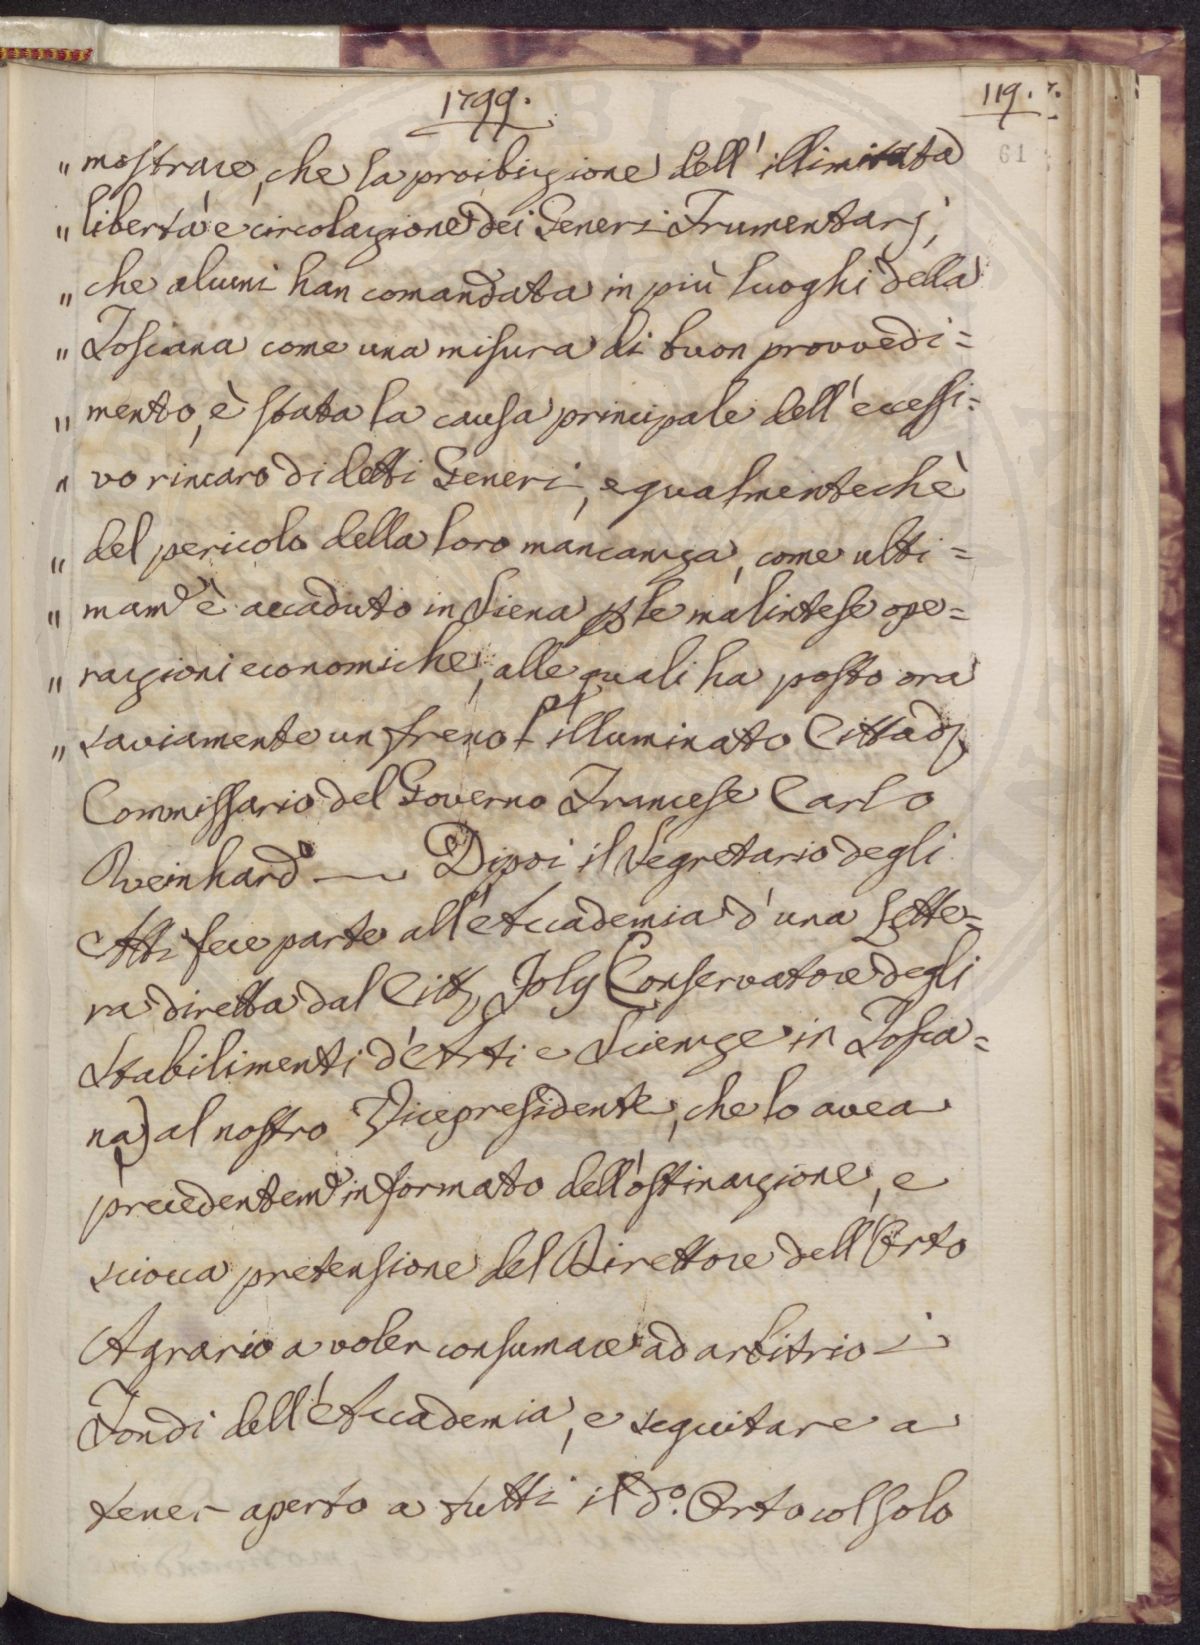 1799.
119.
61
„ mostrare, che la proibizione dell' illimitata
„ libertà e circolazione dei Generi Frumentarj,
„ che alcuni han comandata in più luoghi della
„ Toscana come una misura di buon provvedi=
„ mento, è stata la causa principale dell' eccessi=
„ vo rincaro di detti Generi, egualmenteché
„ del pericolo della loro mancanza, come ulti=
„ mam.e è accaduto in Siena p le malintese ope=
„ razioni economiche, alle quali ha posto ora
„ saviamente un freno l' illuminato Cittad.
Commissario del Governo Francese Carlo
Reinhard — Dipoi il Segretario degli
Atti fece parte all' Accademia d' una Lette=
ra diretta dal Citt. Joly Conservatore degli
Stabilimenti d' Arti e Scienze in Tosca=
na) al nostro Vicepresidente, che lo avea
precedentem.e informato dell' ostinazione, e
sciocca pretensione del Direttore dell' Orto
Agrario a voler consumare ad arbitrio i
Fondi dell' Accademia, e seguitare a
tener aperto a tutti il d.o Orto col solo